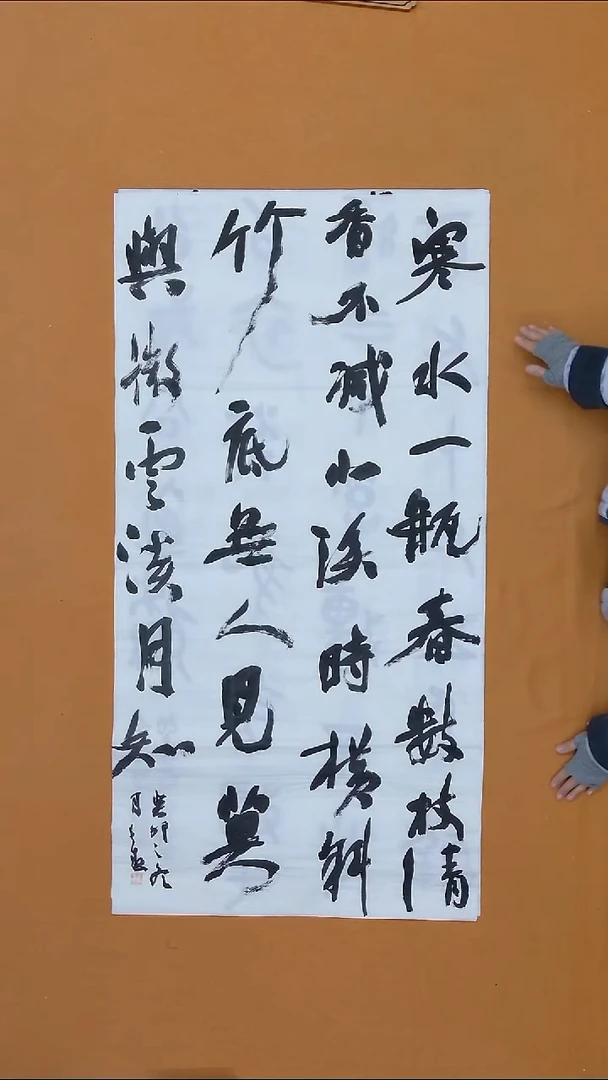 寒水一瓶春數枝清
香不減小溪時橫斜
竹底無人見莫
與微雲淡月知
癸卯之冬